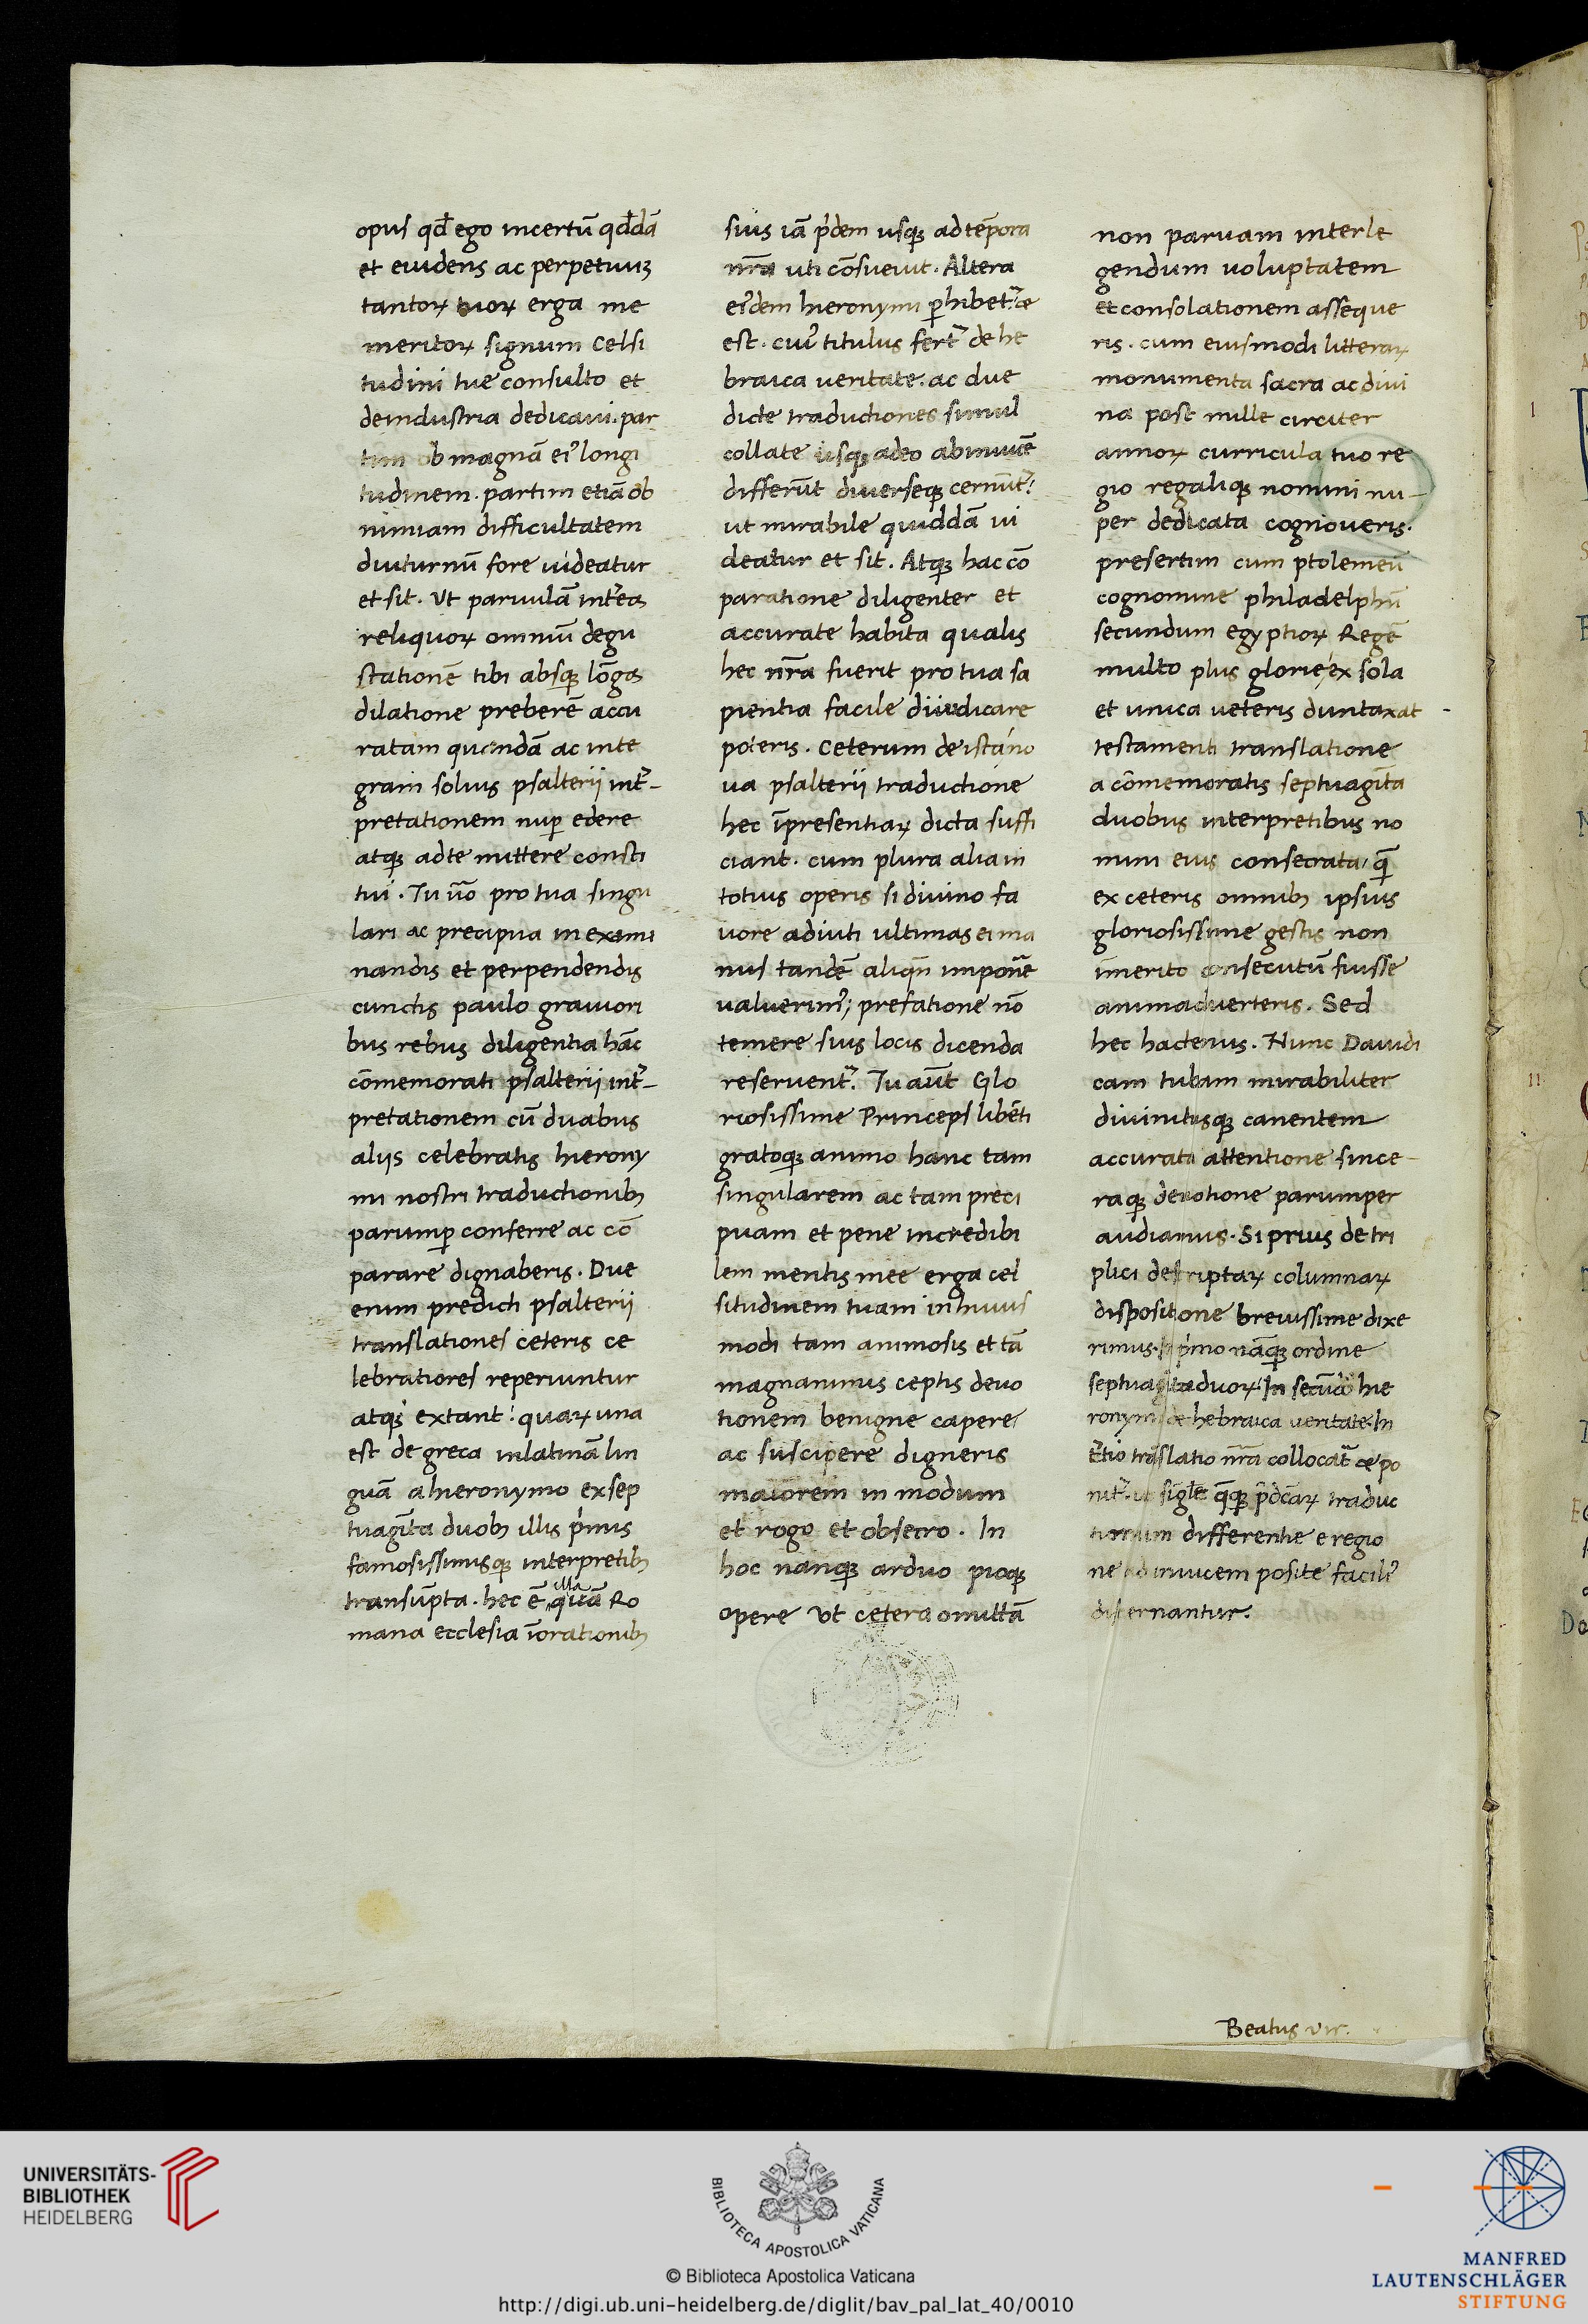 opus qđ ego incertũ qđdã
et euidens ac perpetuuꝫ
tantoꝝ tuoꝝ erga me
meritoꝝ signum Celsi
tudini tue consulto et
deindustria dedicaui. par
tim ob magnã ei᷒ longi
tudinem. partim etiã ob
nimiam difficultatem
diuturnũ fore uideatur
et sit. Ut paruulã int̉ea
reliquoꝝ omniũ degu
stationẽ tibi absqꝫ lõga
dilatione preberẽ accu
ratam quandã ac inte
gram solius psalterii int̉-
pretationem nuꝑ edere
atqꝫ adte mittere consti
tui. Tu uõ pro tua singu
lari ac precipua in exami
nandis et perpendendis
cunctis paulo grauiori
bus rebus diligentia hãc
cõmemorati psalterii int̉-
pretationem cũ duabus
aliis celebratis hierony
mi nostri traductionibꝫ
parumꝑ conferre ac cõ
parare dignaberis. Due
enim predicti psalterii
translationes ceteris ce
lebratiores reperiuntur
atqꝫ extant: quaꝝ una
est de greca inlatinã lin
guã ahieronymo exsep
tuagĩta duobꝫ illis p̍mis
famosissimisqꝫ interpretibꝫ
transũpta. hec ẽ illa quã Ro
mana ecclesia ĩorationibꝫ
suis iã p̍dem usqꝫ ad tẽpora
nr̃a uti cõsueuit. Altera
ei᷒dem hieronymi ꝑhibet᷑ ẽe
est. cui᷒ titulus fert᷑ de he
braica ueritate. ac due
dicte traductiones simul
collate usqꝫ adeo abinuicẽ
differũt diuerseqꝫ cernũt᷑:
ut mirabile quiddã ui
deatur et sit. Atqꝫ hac cõ
paratione diligenter et
accurate habita qualis
hec nr̃a fuerit pro tua sa
pientia facile diiudicare
poteris. Ceterum de ista no
ua psalterii traductione
hec ĩpresentiaꝝ dicta suffi
ciant. cum plura alia in
totius operis si diuino fa
uore adiuti ultimas ei ma
nus tandẽ aliqñ imponẽ
ualuerim᷒; prefatione nõ
temere suis locis dicenda
reseruent᷑. Tu aũt Glo
riosissime Princeps libẽti
gratoqꝫ animo hanc tam
singularem ac tam preci
puam et pene incredibi
lem mentis mee erga cel
situdinem tuam in huius
modi tam animosis et tã
magnanimis ceptis deuo
tionem benigne capere
ac suscipere digneris
maiorem in modum
et rogo et obsecro. In
hoc nanqꝫ arduo pioqꝫ
opere ut cetera omittã
non paruam interle
gendum uoluptatem
et consolationem asseque
ris. cum eiusmodi litteraꝝ
monumenta sacra ac diui
na post mille circiter
annoꝝ curricula tuo re
gio regaliqꝫ nomini nu-
per dedicata cognoueris.
presertim cum ptolemeũ
cognomine philadelphũ
secundum egyptioꝝ Regẽ
multo plus glorie ex sola
et unica ueteris duntaxat
testamenti translatione
a cõmemoratis septuagĩta
duobus interpretibus no
mini eius consecrata, q̃
ex ceteris omnibꝫ ipsius
gloriosissime gestis non
ĩmerito consecutũ fuisse
animaduerteris. Sed
hec hactenus. Nunc Dauidi
cam tubam mirabiliter
diuinitusqꝫ canentem
accurata attentione since-
raqꝫ deuotione parumper
audiamus. Si prius de tri
plici descriptaꝝ columnaꝝ
dispositione breuissime dixe
rimus. p̍mo nãqꝫ ordine
septuagĩtaduoꝝ. In secũdo hie
ronymi de hebraica ueritate. In
t̉tio trãslatio nr̃a collocat᷑ ce po
nit᷑. ut sigle q̃qꝫ p̃dcaꝝ traduc
tionum differentie e regio
ne adinuicem posite facilĩ
discernantur.
Beatus uir.
UNIVERSITÄTS-
BIBLIOTHEK
HEIDELBERG
BIBLIOTECA APOSTOLICA VATICANA
© Biblioteca Apostolica Vaticana
http://digi.ub.uni-heidelberg.de/diglit/bav_pal_lat_40/0010
MANFRED
LAUTENSCHLÄGER
STIFTUNG